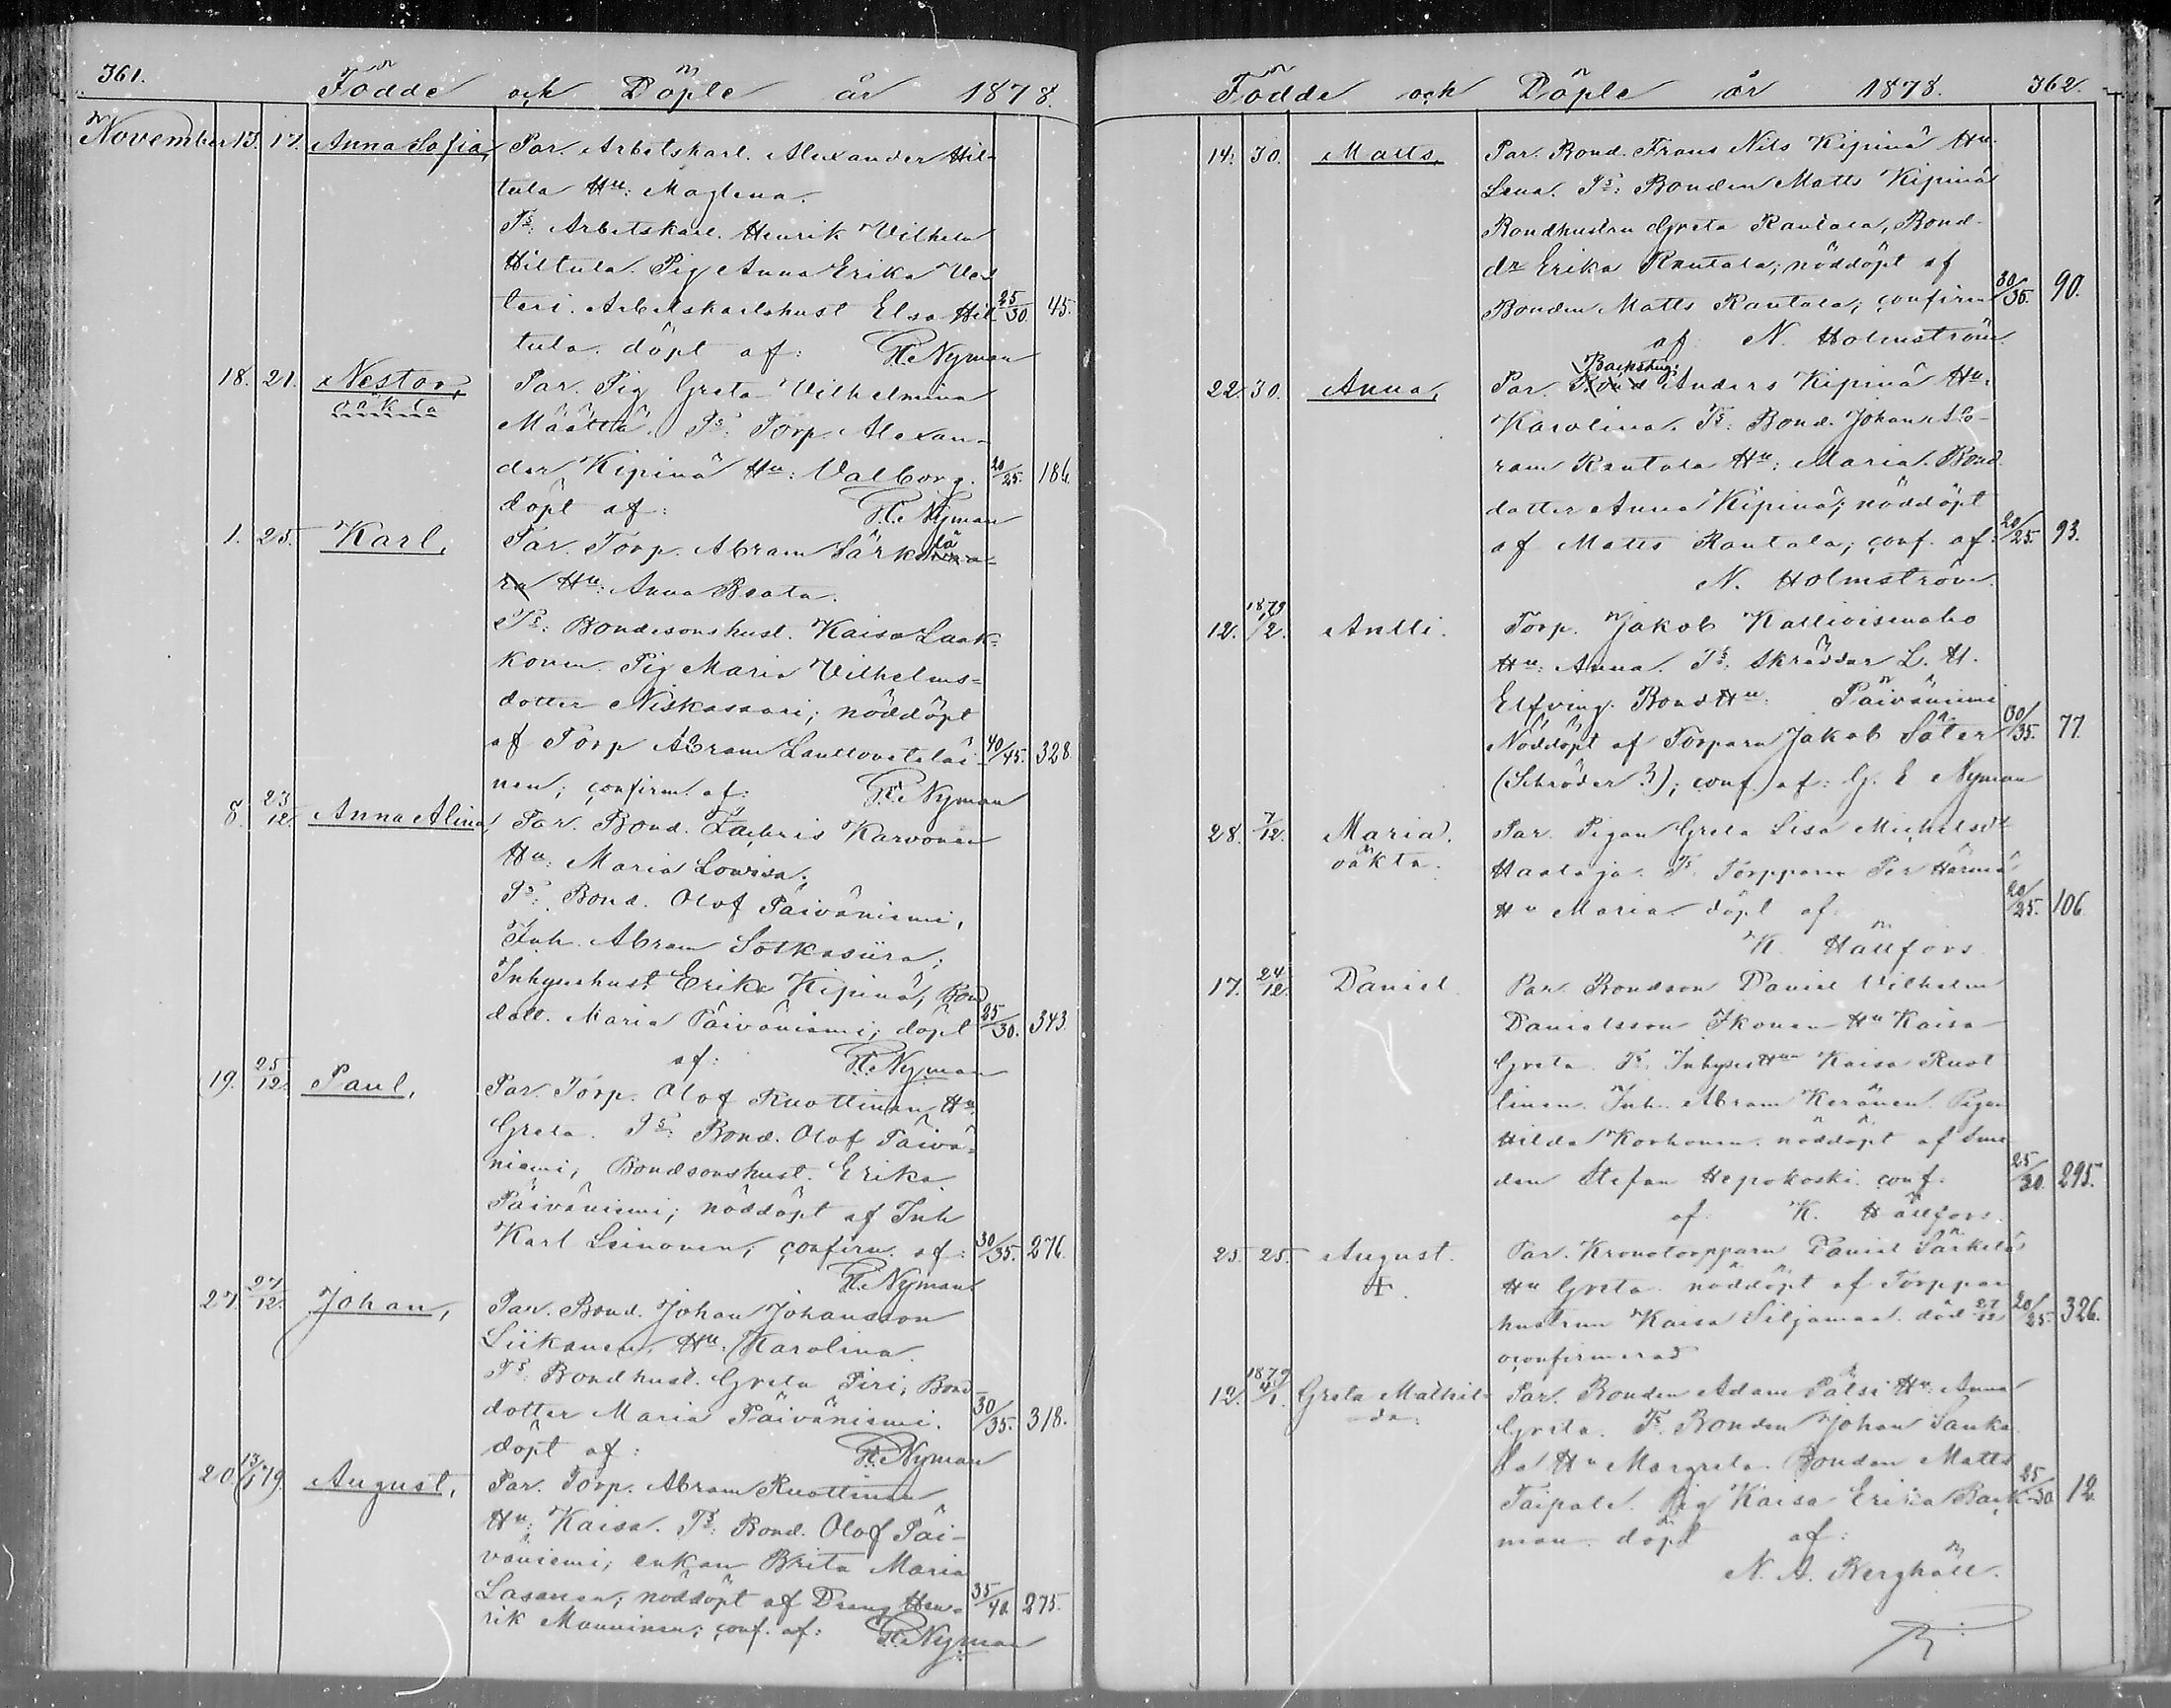 361.
Födde och Döpte år 1878.
November 13. 17. Anna Sofia, Par. Arbetskarl. Alexander Hil-
tula Hu: Maglena.
Ts: Arbetskarl. Henrik Vilhelm
Hiltula. Pig Anna Erika Ves
teri. Arbetskarlshust Elsa Hil- 25/30. 45.
tula. döpt af: H. Nyman
18. 21. Nestor, Par. Pig Greta Vilhelmina
oäkta
Määttä. Ts: Torp. Alexan-
der Kipinä Hu: Valborg. 20/25. 186.
döpt af: H. Nyman
1. 25. Karl, Par. Torp. Abram Särkelä
Hu: Anna Beata.
Ts: Bondesonshust. Kaisa Laak-
konen. Pig Maria Vilhelms-
dotter Niskasaari; nöddöpt
af Torp Abram 40/45. 328.
nen; confirm. af: H. Nyman
8. 23/12. Anna Alina, Par. Bond. Zachris Karvonen
Hu: Maria Lovisa.
Ts: Bond. Olof Päiväniemi,
Inh. Abram Sotkasiira;
Inhyseshust Erika Kipinä, Bond
dott. Maria Päiväniemi; döpt 25/30. 343.
af: H. Nyman
19. 25/12. Paul, Par. Torp. Olof Ruottinen Hu:
Greta. Ts: Bond. Olof Päivä-
niemi, Bondsonshust. Erika
Päiväniemi; nöddöpt af Inh
Karl Leinonen; confirm. af: 30/35. 276.
H. Nyman
27. 27/12. Johan, Par. Bond. Johan Johansson
Siikanen, Hu: Karolina.
Ts: Bondhust. Greta Piri, Bond-
dotter Maria Päiväniemi. 30/35. 318.
döpt af: H. Nyman
20. 13/1 79. August, Par. Torp. Abram Ruottinen
Hu: Kaisa. Ts: Bond. Olof Päi-
väniemi; enkan Brita Maria
Lasanen; nöddöpt af Dreng Hen- 35/40. 275.
rik Manninen; conf. af: H. Nyman
Födde och Döpte år 1878. 362.
14. 30. Matts, Par. Bond. Frans Nils Kipinä Hu:
Lena. Ts: Bonden Matts Kipinä
Bondhustru Greta Rautala, Bond-
dr Erika Rautala; nöddöpt af
Bonden Matts Rautala; confirm 30/35. 90.
af N. Holmström.
Backstug:
22. 30. Anna, Par. Bond Anders Kipinä Hu:
Karolina. Ts: Bond. Johan Ab-
ram Rautala Hu: Maria. Bond
dotter Anna Kipinä; nöddöpt
af Matts Rautala; conf. af: 20/25. 93.
N. Holmström.
12. 1879 1/2. Antti. Torp. Jakob Kallioisenaho
Hu: Anna. Ts: Skräddar L. H.
Elfving. Bond Hu: Päiväniemi
Nöddöpt af Torparn Jakob Säter 30/35. 77.
(Schröder?); conf. af: G. E Nyman
28. 7/12. Maria. Par. Pigan Greta Lisa Michelsdr
oäkta. Haataja. Ts. Torpparn Per Härmä
Hu Maria döpt af. 20/25. 106.
K. Hällfors
17. 24/12. Daniel Par. Bondson Daniel Vilhelm
Danielsson Ikonen Hu Kaisa
Greta. Ts. Inhyses Hu Kaisa Ruot
tinen. Inh. Abram Keränen. Pigan
Hilda Korhonen. nöddöpt af Sme
den Stefan Hepokoski. conf. 25/30. 295.
af K. Hällfors.
25. 25. August. Par. Kronotorpparn Daniel Särkelä
Hu Greta nöddöpt af Torppar
hustrun Kaisa Siljamaa. död 27/12 20/25. 326.
oconfirmerad
12. 1879 4/1. Greta Mathil- Par. Bonden Adam Pätsi Hu: Anna
da. Greta. Ts. Bonden Johan Lauka
la Hu Margreta. Bonden Matts
Taipale. Pig Kaisa Erika Back- 25/30 12.
man. döpt af:
N. A. Berghäll.